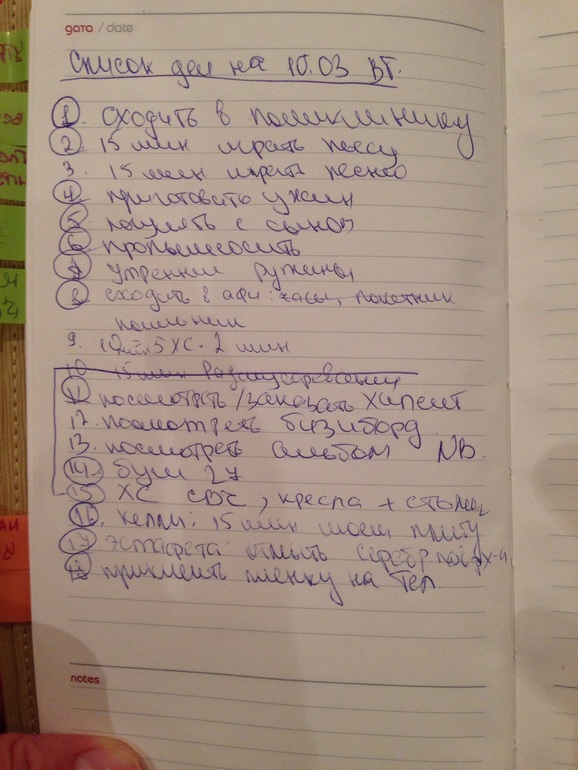 дата / date
Список дел на 10.03 ВТ.
1. сходить в поликлинику
2. 15 мин играть пьесу
3. 15 мин играть песню
4. приготовить ужин
5. погулять с сыном
6. пропылесосить
7. утренние рутины
8. сходить в афи: часы,
9. 5 ХС - 2 мин
10. 15 мин
11. посмотреть/заказать
12. посмотреть бизиборд
13. посмотреть альбом NB.
14. 27
15. ХС СВЧ, кресла + столы
16. Келли: 15 мин моем плиту
17. Эстафета: отмыть
18. приклеить пленку на тел
notes